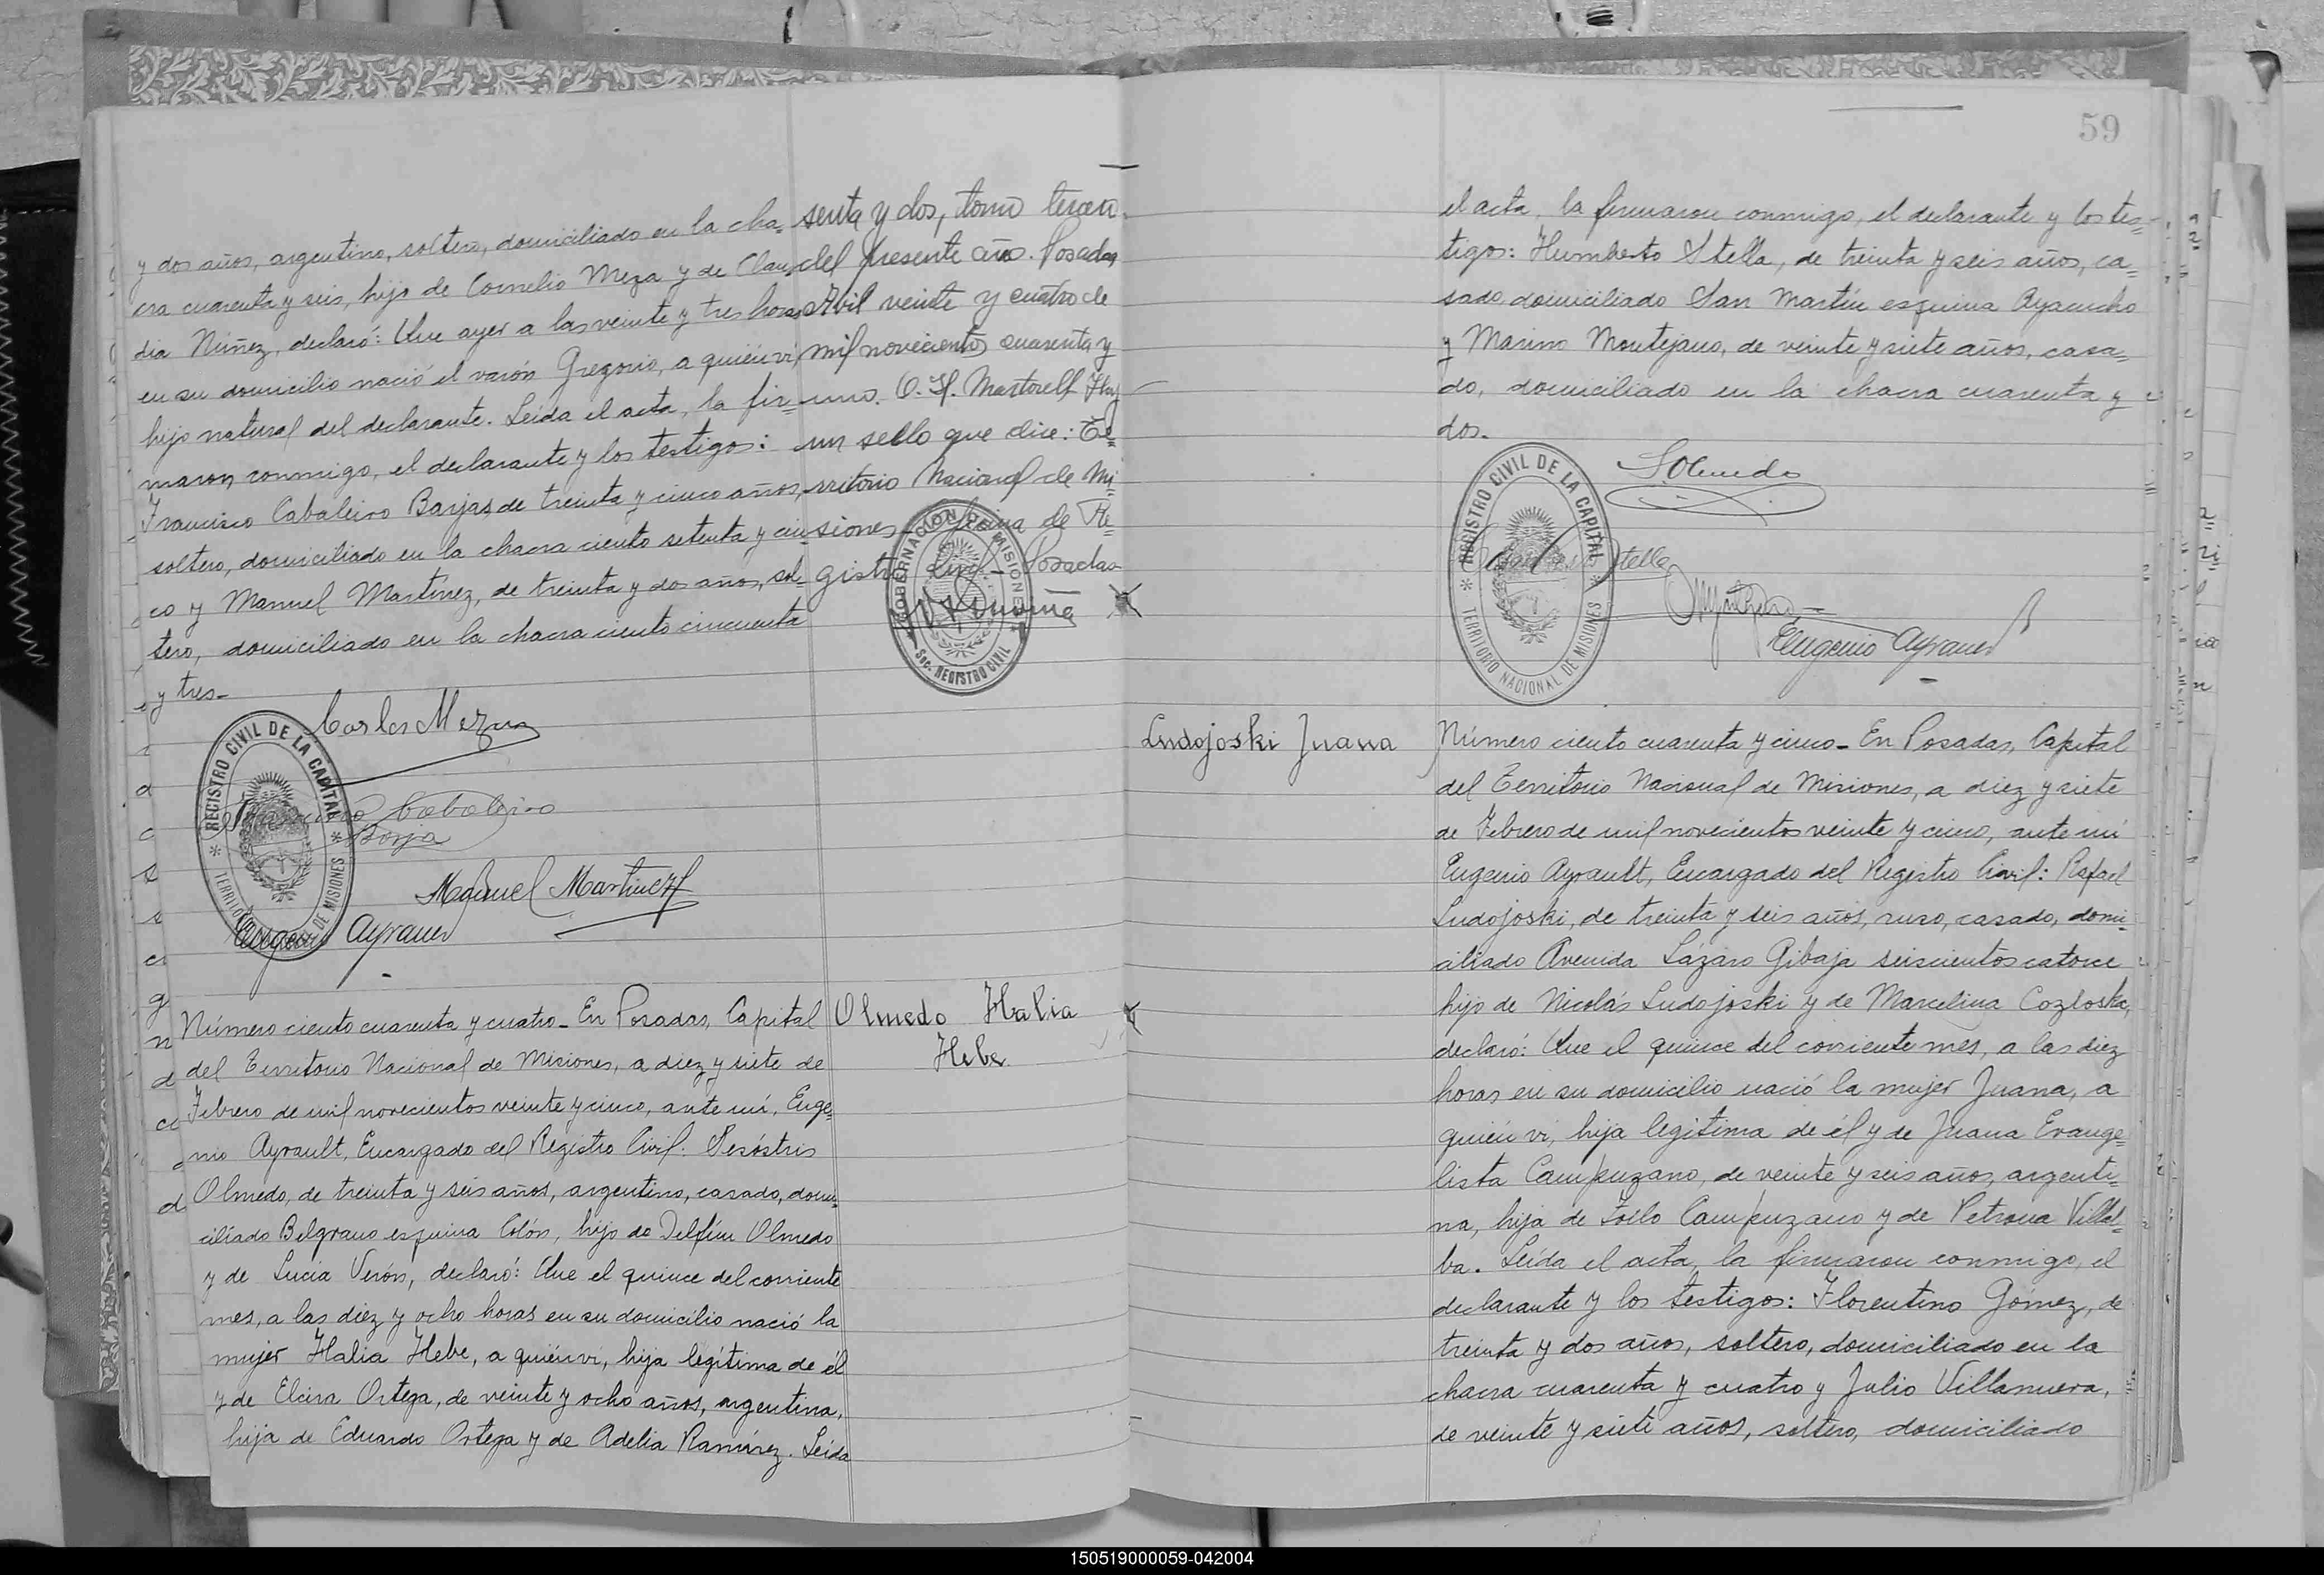 y dos años, argentino, soltero, domiciliado en la cha=
cra cuarenta y seis, hijo de Cornelio Meza y de Clau=
dia Núñez, declaró: Que ayer a las veinte y tres horas
en su domicilio nació el varón Gregorio, a quién vi,
hijo natural del declarante. Leída el acta, la fir=
maron conmigo, el declarante y los testigos:
Francisco Cabaleiro Barjas, de treinta y cinco años,
soltero, domiciliado en la chacra ciento setenta y cin=
co y Manuel Martínez, de treinta y dos años, sol=
tero, domiciliado en la chacra ciento cincuenta
y tres-
senta y dos, tomo tercero
del presente año. Posadas
Abril veinte y cuatro de
mil novecientos cuarenta y
uno. O. H. Martorell Hay
un sello que dice: Te=
rritorio Nacional de Mi=
siones Oficina de Re=
gistro Civil- Posadas
GOBERNACION DE MISIONES
Sec. REGISTRO CIVIL
Carlos Meza
REGISTRO CIVIL DE LA CAPITAL
TERRITORIO NACIONAL DE MISIONES
Francisco Cabaleiro
Borja
Manuel Martinez
Eugenio Ayrault
Olmedo Halia
Hebe
Número ciento cuarenta y cuatro- En Posadas, Capital
del Territorio Nacional de Misiones, a diez y siete de
Febrero de mil novecientos veinte y cinco, ante mí, Euge=
nio Ayrault, Encargado del Registro Civil: Sesóstris
Olmedo, de treinta y seis años, argentino, casado, domi=
ciliado Belgrano esquina Colón, hijo de Delfín Olmedo
y de Lucía Verón, declaró: Que el quince del corriente
mes, a las diez y ocho horas en su domicilio nació la
mujer Halia Hebe, a quién vi, hija legítima de él
y de Elcira Ortega, de veinte y ocho años, argentina,
hija de Eduardo Ortega y de Adelia Ramírez. Leída
59
el acta, la firmaron conmigo, el declarante y los tes=
tigos: Humberto Stella, de treinta y seis años, ca=
sado, domiciliado San Martín esquina Ayacucho
y Marino Montejano, de veinte y siete años, casa=
do, domiciliado en la chacra cuarenta y
dos.
S. Olmedo
REGISTRO CIVIL DE LA CAPITAL
TERRITORIO NACIONAL DE MISIONES
Stella
Eugenio Ayrault
Ludojoski Juana
Número ciento cuarenta y cinco- En Posadas, Capital
del Territorio Nacional de Misiones, a diez y siete
de Febrero de mil novecientos veinte y cinco, ante mí
Eugenio Ayrault, Encargado del Registro Civil: Rafael
Ludojoski, de treinta y seis años, ruso, casado, domi=
ciliado Avenida Lázaro Gibaja seiscientos catorce
hijo de Nicolás Ludojoski y de Marcelina Cozloska,
declaró: Que el quince del corriente mes, a las diez
horas en su domicilio nació la mujer Juana, a
quién vi, hija legítima de él y de Juana Evange=
lista Campuzano, de veinte y seis años, argenti=
na, hija de Toello Campuzano y de Petrona Villal=
ba. Leída el acta, la firmaron conmigo, el
declarante y los testigos: Florentino Gómez, de
treinta y dos años, soltero, domiciliado en la
chacra cuarenta y cuatro y Julio Villanueva,
de veinte y siete años, soltero, domiciliado
150519000059-042004